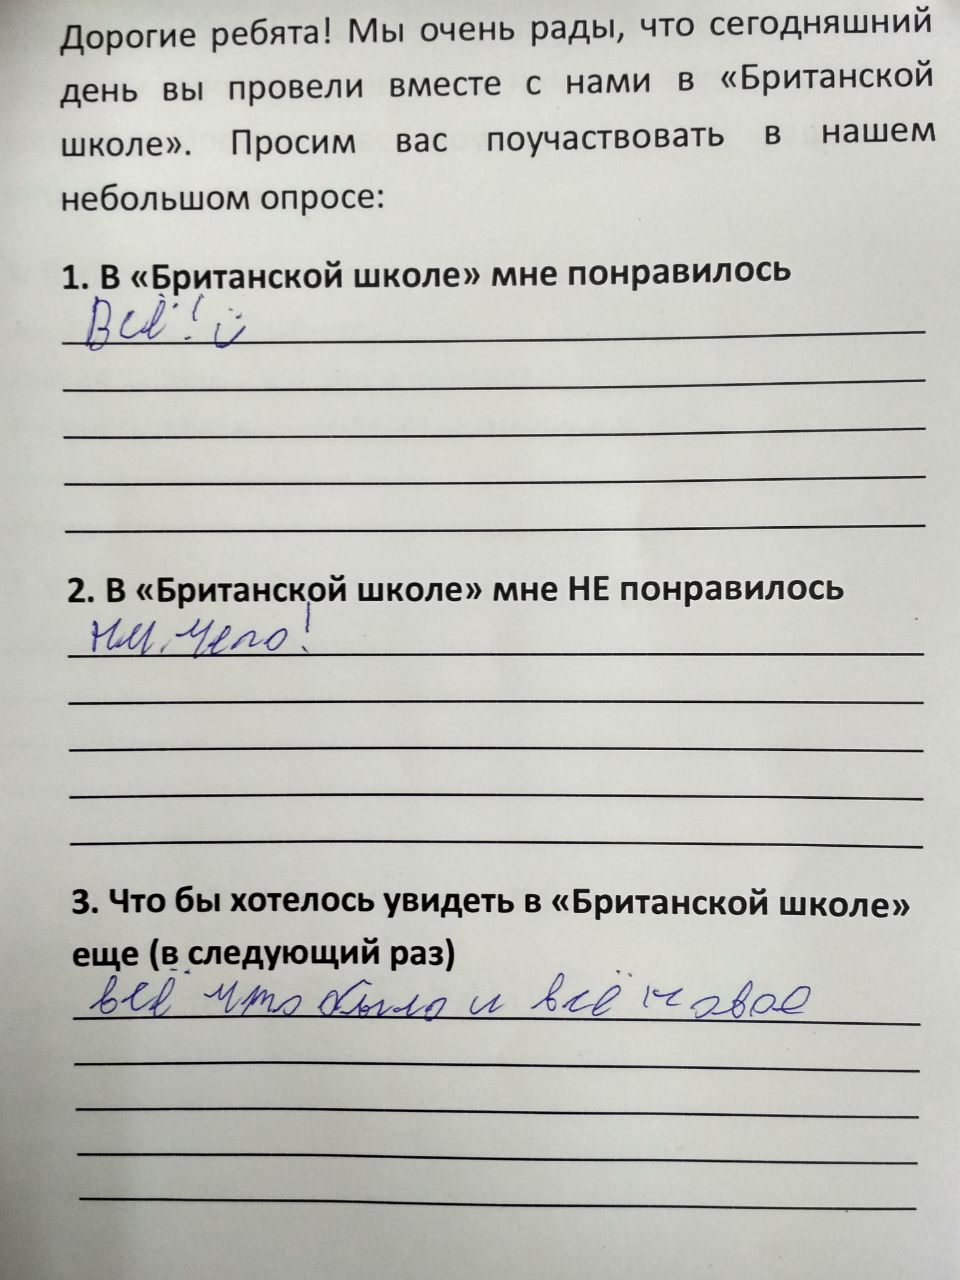 Дорогие ребята! Мы очень рады, что сегодняшний
день вы провели вместе с нами в «Британской
школе». Просим вас поучаствовать в нашем
небольшом опросе:
1. В «Британской школе» мне понравилось
Всё! :)
2. В «Британской школе» мне НЕ понравилось
ни чего!
3. Что бы хотелось увидеть в «Британской школе»
еще (в следующий раз)
всё что было и всё новое